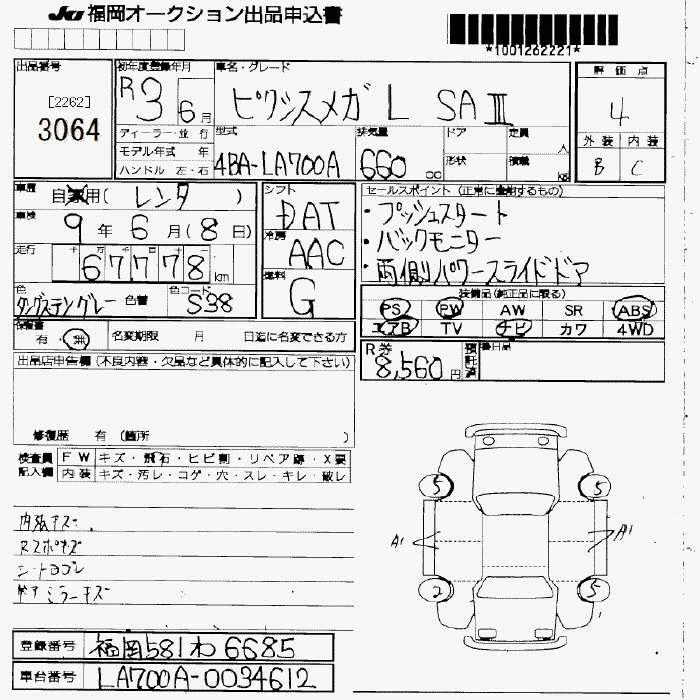 JU 福岡オークション出品申込書
*1001262221*
出品番号
[2262]
3064
初年度登録年月
R3 6月
ディーラー・並行
モデル年式 年
ハンドル 左・右
車名・グレード
ピクシスメガ L SAⅢ
型式
4BA-LA700A
排気量
660 cc
ドア
形状
定員 人
積載 kg
評価点
4
外装 内装
B C
車歴
自家用(レンタ)
車検
9年6月(8日)
走行
十 万 千 百 十 一
67778 km
色
タングステングレー 色替
色コード
S38
シフト
DAT
冷房
AAC
燃料
G
セールスポイント (正常に登動するもの)
・プッシュスタート
・バックモニター
・両側パワースライドドア
装備品(純正品に限る)
PS PW AW SR ABS
エアB TV ナビ カワ 4WD
保証書
有・無
名変期限 月 日迄に名変できる方
R券
8,560円
預託済
後日品
出品店申告欄(不良内容・欠品など具体的に記入して下さい)
修復歴 有 (箇所 )
検査員
記入欄
FW キズ・飛石・ヒビ割・リペア跡・X要
内装 キズ・汚レ・コゲ・穴・スレ・キレ・破レ
内張キズ
シートヨゴレ
5 5
A1 A1
2 5
登録番号
福岡581わ6685
車台番号
LA700A-0034612